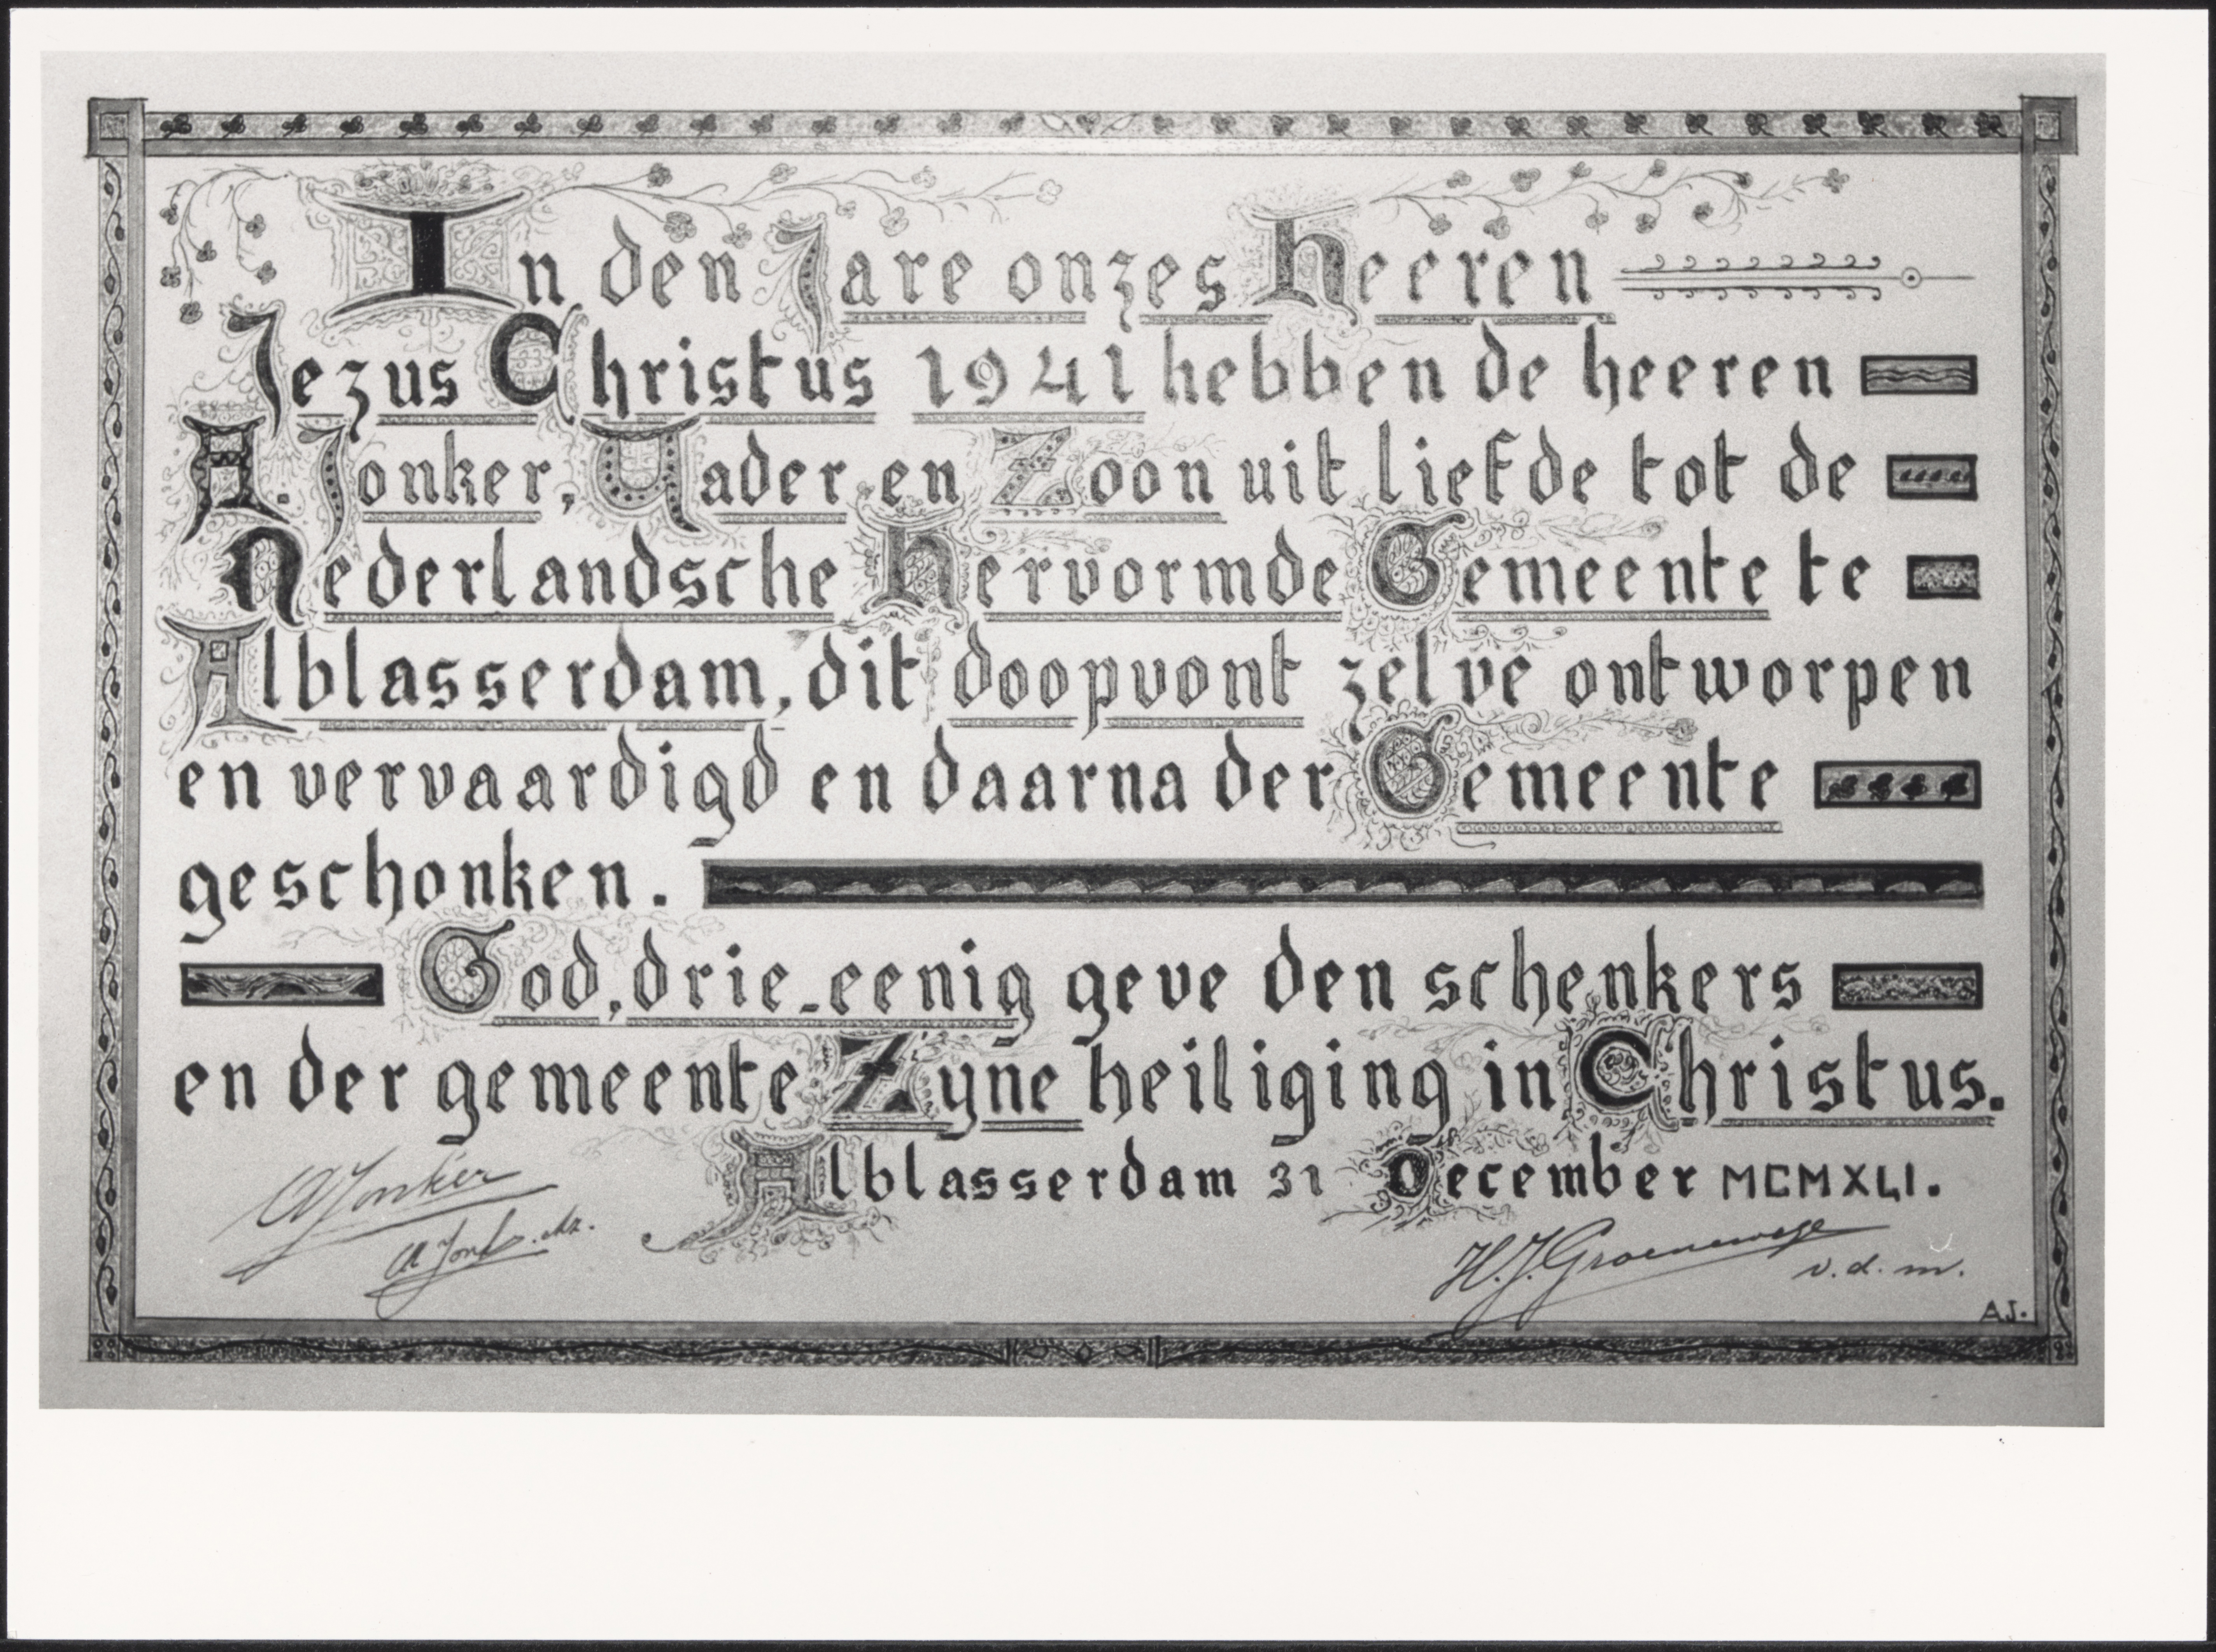 In den Jare onzes Heeren
Jezus Christus 1941 hebben de heeren
A. Jonker, Vader en Zoon uit liefde tot de
Nederlandsche Hervormde Gemeente te
Alblasserdam, dit doopvont zelve ontworpen
en vervaardigd en daarna der Gemeente
geschonken.
God, drie-eenig geve den schenkers
en der gemeente Zyne heiliging in Christus.
Alblasserdam 31 December MCMXLI.
A Jonker
A Jonker
H.J. Groenewege
v.d.m.
A.J.